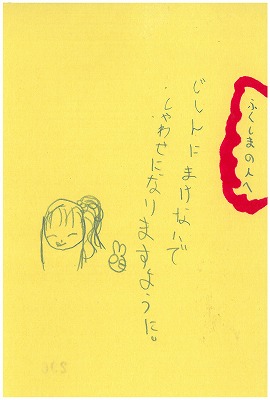 ふくしまの人へ
じしんにまけないで
しあわせになりますように。